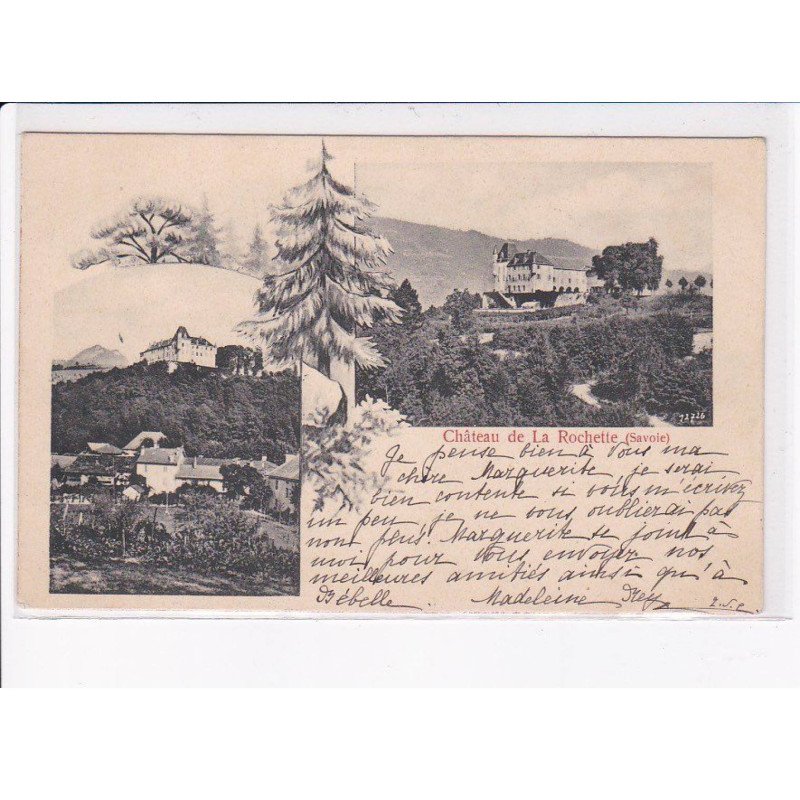 92726
Château de La Rochette (Savoie)
Je pense bien à vous ma
chere Marguerite je serai
bien contente si vous m'écrivez
un peu je ne vous oublierai pas
non plus. Marguerite se joint à
moi pour vous envoyez nos
meilleures amitiés ainsi qu'à
Bébelle. Madeleine